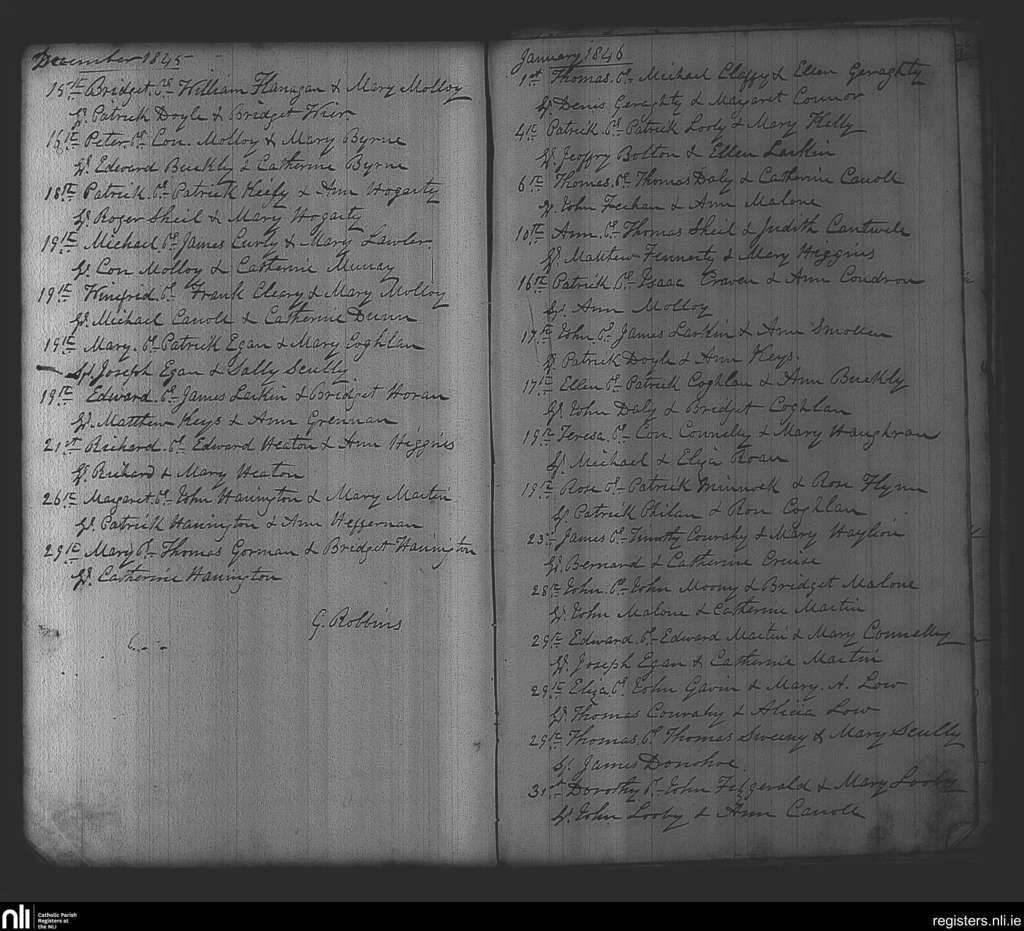 December 1845
15th Bridget. Pr. William Flanagan & Mary Molloy
Sp. Patrick Doyle & Bridget Wier
16th Peter. Pr. Con. Molloy & Mary Byrne
Sp. Edward Buckly & Catherine Byrne
18th Patrick. Pr. Patrick Keefy & Ann Hogarty
Sp. Roger Sheil & Mary Hogarty
19th Michael Pr. James Curly & Mary Lawler
Sp. Con Molloy & Catherine Murray
19th Winefrid. Pr. Frank Cleary & Mary Molloy
Sp. Michael Caroll & Catherine Dunn
19th Mary. Pr. Patrick Egan & Mary Coghlan
Sp. Joseph Egan & Sally Scully
19th Edward. Pr. James Larkin & Bridget Horan
Sp. Matthew Keys & Ann Grennan
21st Richard. Pr. Edward Heaton & Ann Higgins
Sp. Richard & Mary Heaton
26th Margaret. Pr. John Hanington & Mary Martin
Sp. Patrick Hanington & Ann Heffernan
29th Mary Pr. Thomas Gorman & Bridget Hanington
Sp. Catherine Hanington
G. Robbins
January 1846
1st Thomas. Pr. Michael Claffy & Ellen Geraghty
Sp. Denis Geraghty & Margaret Connor
4th Patrick. Pr. Patrick Looly & Mary Kelly
Sp. Jeoffry Bolton & Ellen Larkin
6th Thomas. Pr. Thomas Daly & Catherine Caroll
Sp. John Feehan & Ann Malone
10th Ann. Pr. Thomas Sheil & Judith Cantwell
Sp. Matthew Fennerty & Mary Higgins
16th Patrick Pr. Isaac Craven & Ann Condron
Sp. Ann Molloy
17th John Pr. James Larkin & Ann Smollen
Sp. Patrick Doyle & Ann Keys.
17th Ellen Pr. Patrick Coghlan & Ann Buckly
Sp. John Daly & Bridget Coghlan
19th Teresa. Pr. Con. & Mary Haughran
Sp. Michael & Eliza Roan
19th Rose Pr. Patrick Minnock & Rose Flynn
Sp. Patrick Philan & Rose Coghlan
23d James Pr. Timothy Conrahy & Mary
Sp. Bernard & Catherine Cruise
28th John. Pr. John Moony & Bridget Malone
Sp. John Malone & Catherine Martin
29th Edward. Pr. Edward Martin & Mary Connelly
Sp. Joseph Egan & Catherine Martin
29th Eliza Pr. John Gavin & Mary. A. Low
Sp. Thomas Conrahy & Alicia Low
29th Thomas. Pr. Thomas Sweeny & Mary Scully
Sp. James Donohoe.
31st Dorothy Pr. John Fitzgerald & Mary Looby
Sp. John Looby & Ann Caroll
nli
Catholic Parish
Registers at
the NLI
registers.nli.ie